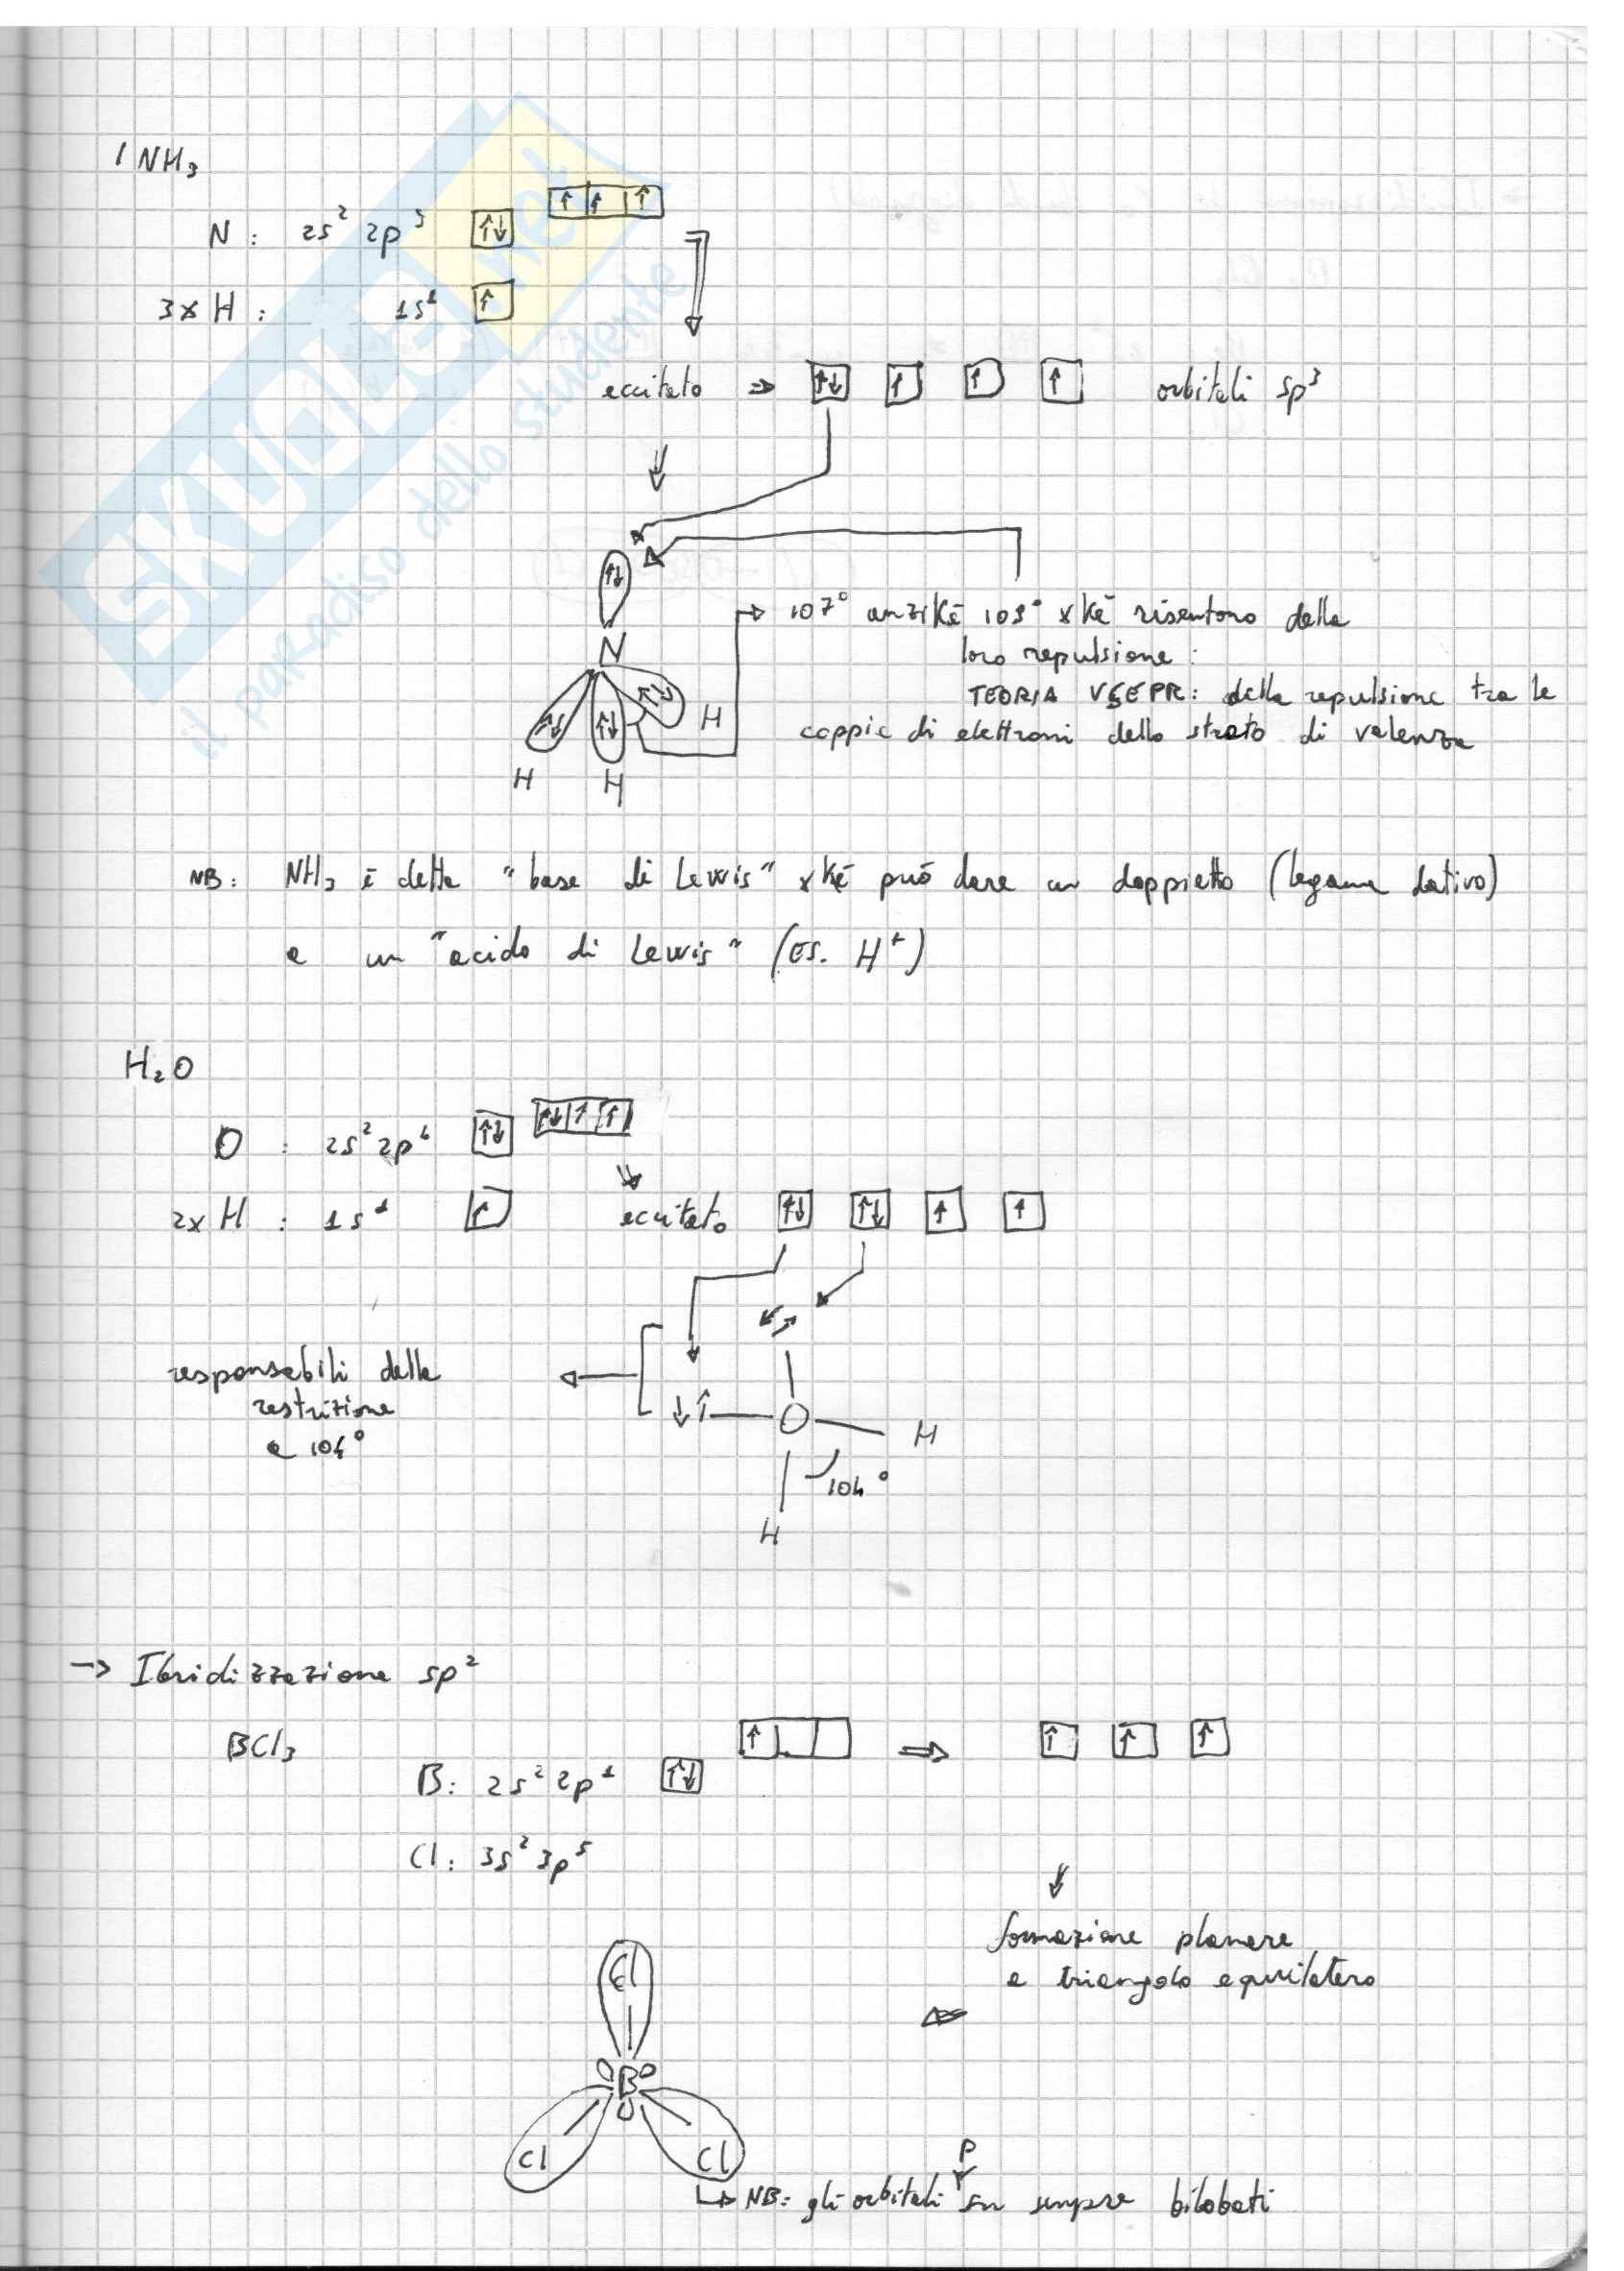 NH₃
N : 2s² 2p³ ↑↓ ↑ ↑ ↑
3x H : 1s¹ ↑
eccitato ⇒ ↑↓ ↑ ↑ ↑ orbitali sp³
↑↓
N
↑↓ ↑↓ ↑↓ H
H H
107° anziKé 109° xKé risentono della
loro repulsione :
TEORIA VSEPR: della repulsione tra le
coppie di elettroni dello strato di valenza
NB: NH₃ è detta "base di Lewis" xKé può dare un doppietto (legame dativo)
a un "acido di Lewis" (ES. H⁺)
H₂O
O : 2s² 2p⁴ ↑↓ ↑↓ ↑ ↑
2x H : 1s¹ ↑ eccitato ↑↓ ↑↓ ↑ ↑
responsabili della
restrizione
a 104°
↓↑ O H
104°
H
→ Ibridizzazione sp²
BCl₃ ↑ ⇒ ↑ ↑ ↑
B: 2s² 2p¹ ↑↓
Cl: 3s² 3p⁵
formazione planare
a triangolo equilatero
Cl
B
Cl Cl
P
NB: gli orbitali sn sempre bilobati
SKUOLA.net
il paradiso dello studente